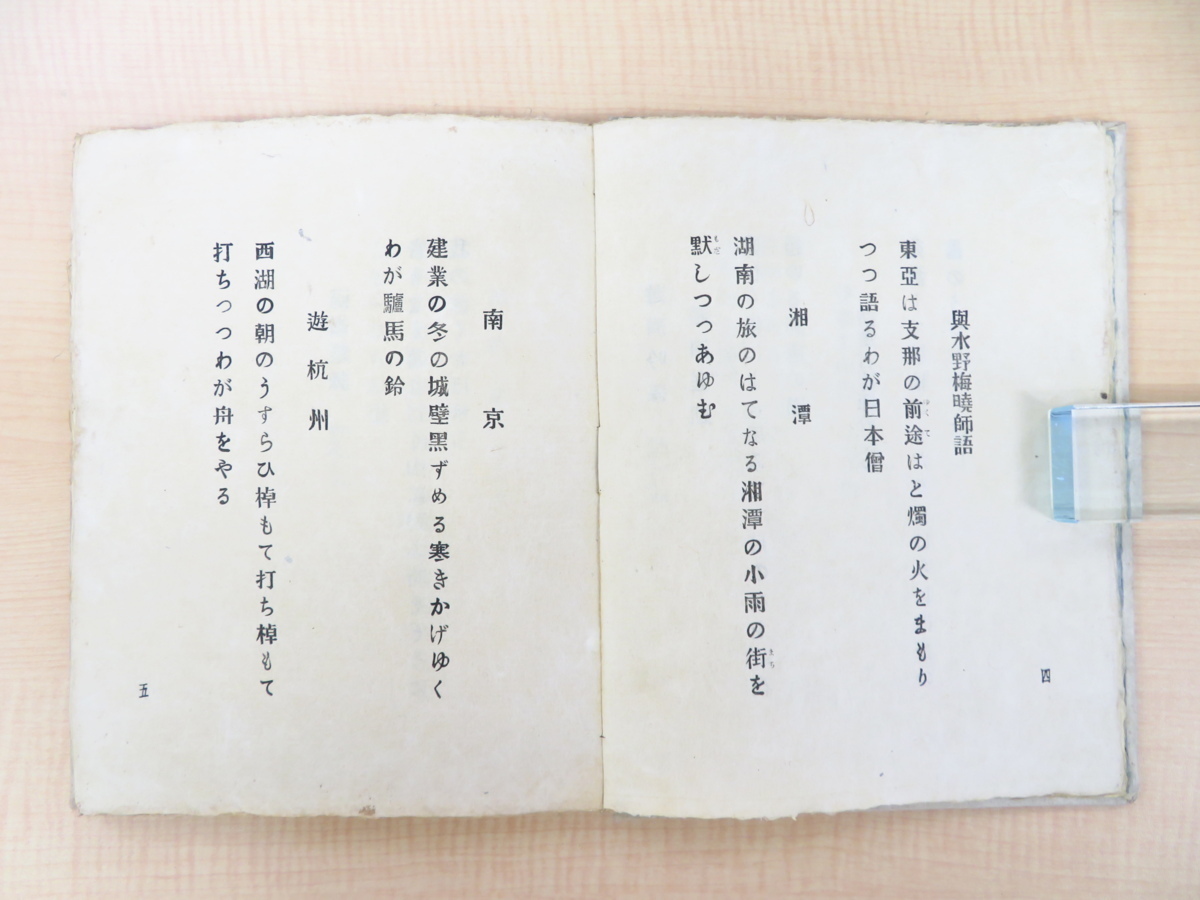 與水野梅曉師語
東亞は支那の前途はと燭の火をまもり
つつ語るわが日本僧
湘潭
湖南の旅のはてなる湘潭の小雨の街を
默しつつあゆむ
四
南京
建業の冬の城壁黑ずめる寒きかげゆく
わが驢馬の鈴
遊杭州
西湖の朝のうすらひ棹もて打ち棹もて
打ちつつわが舟をやる
五